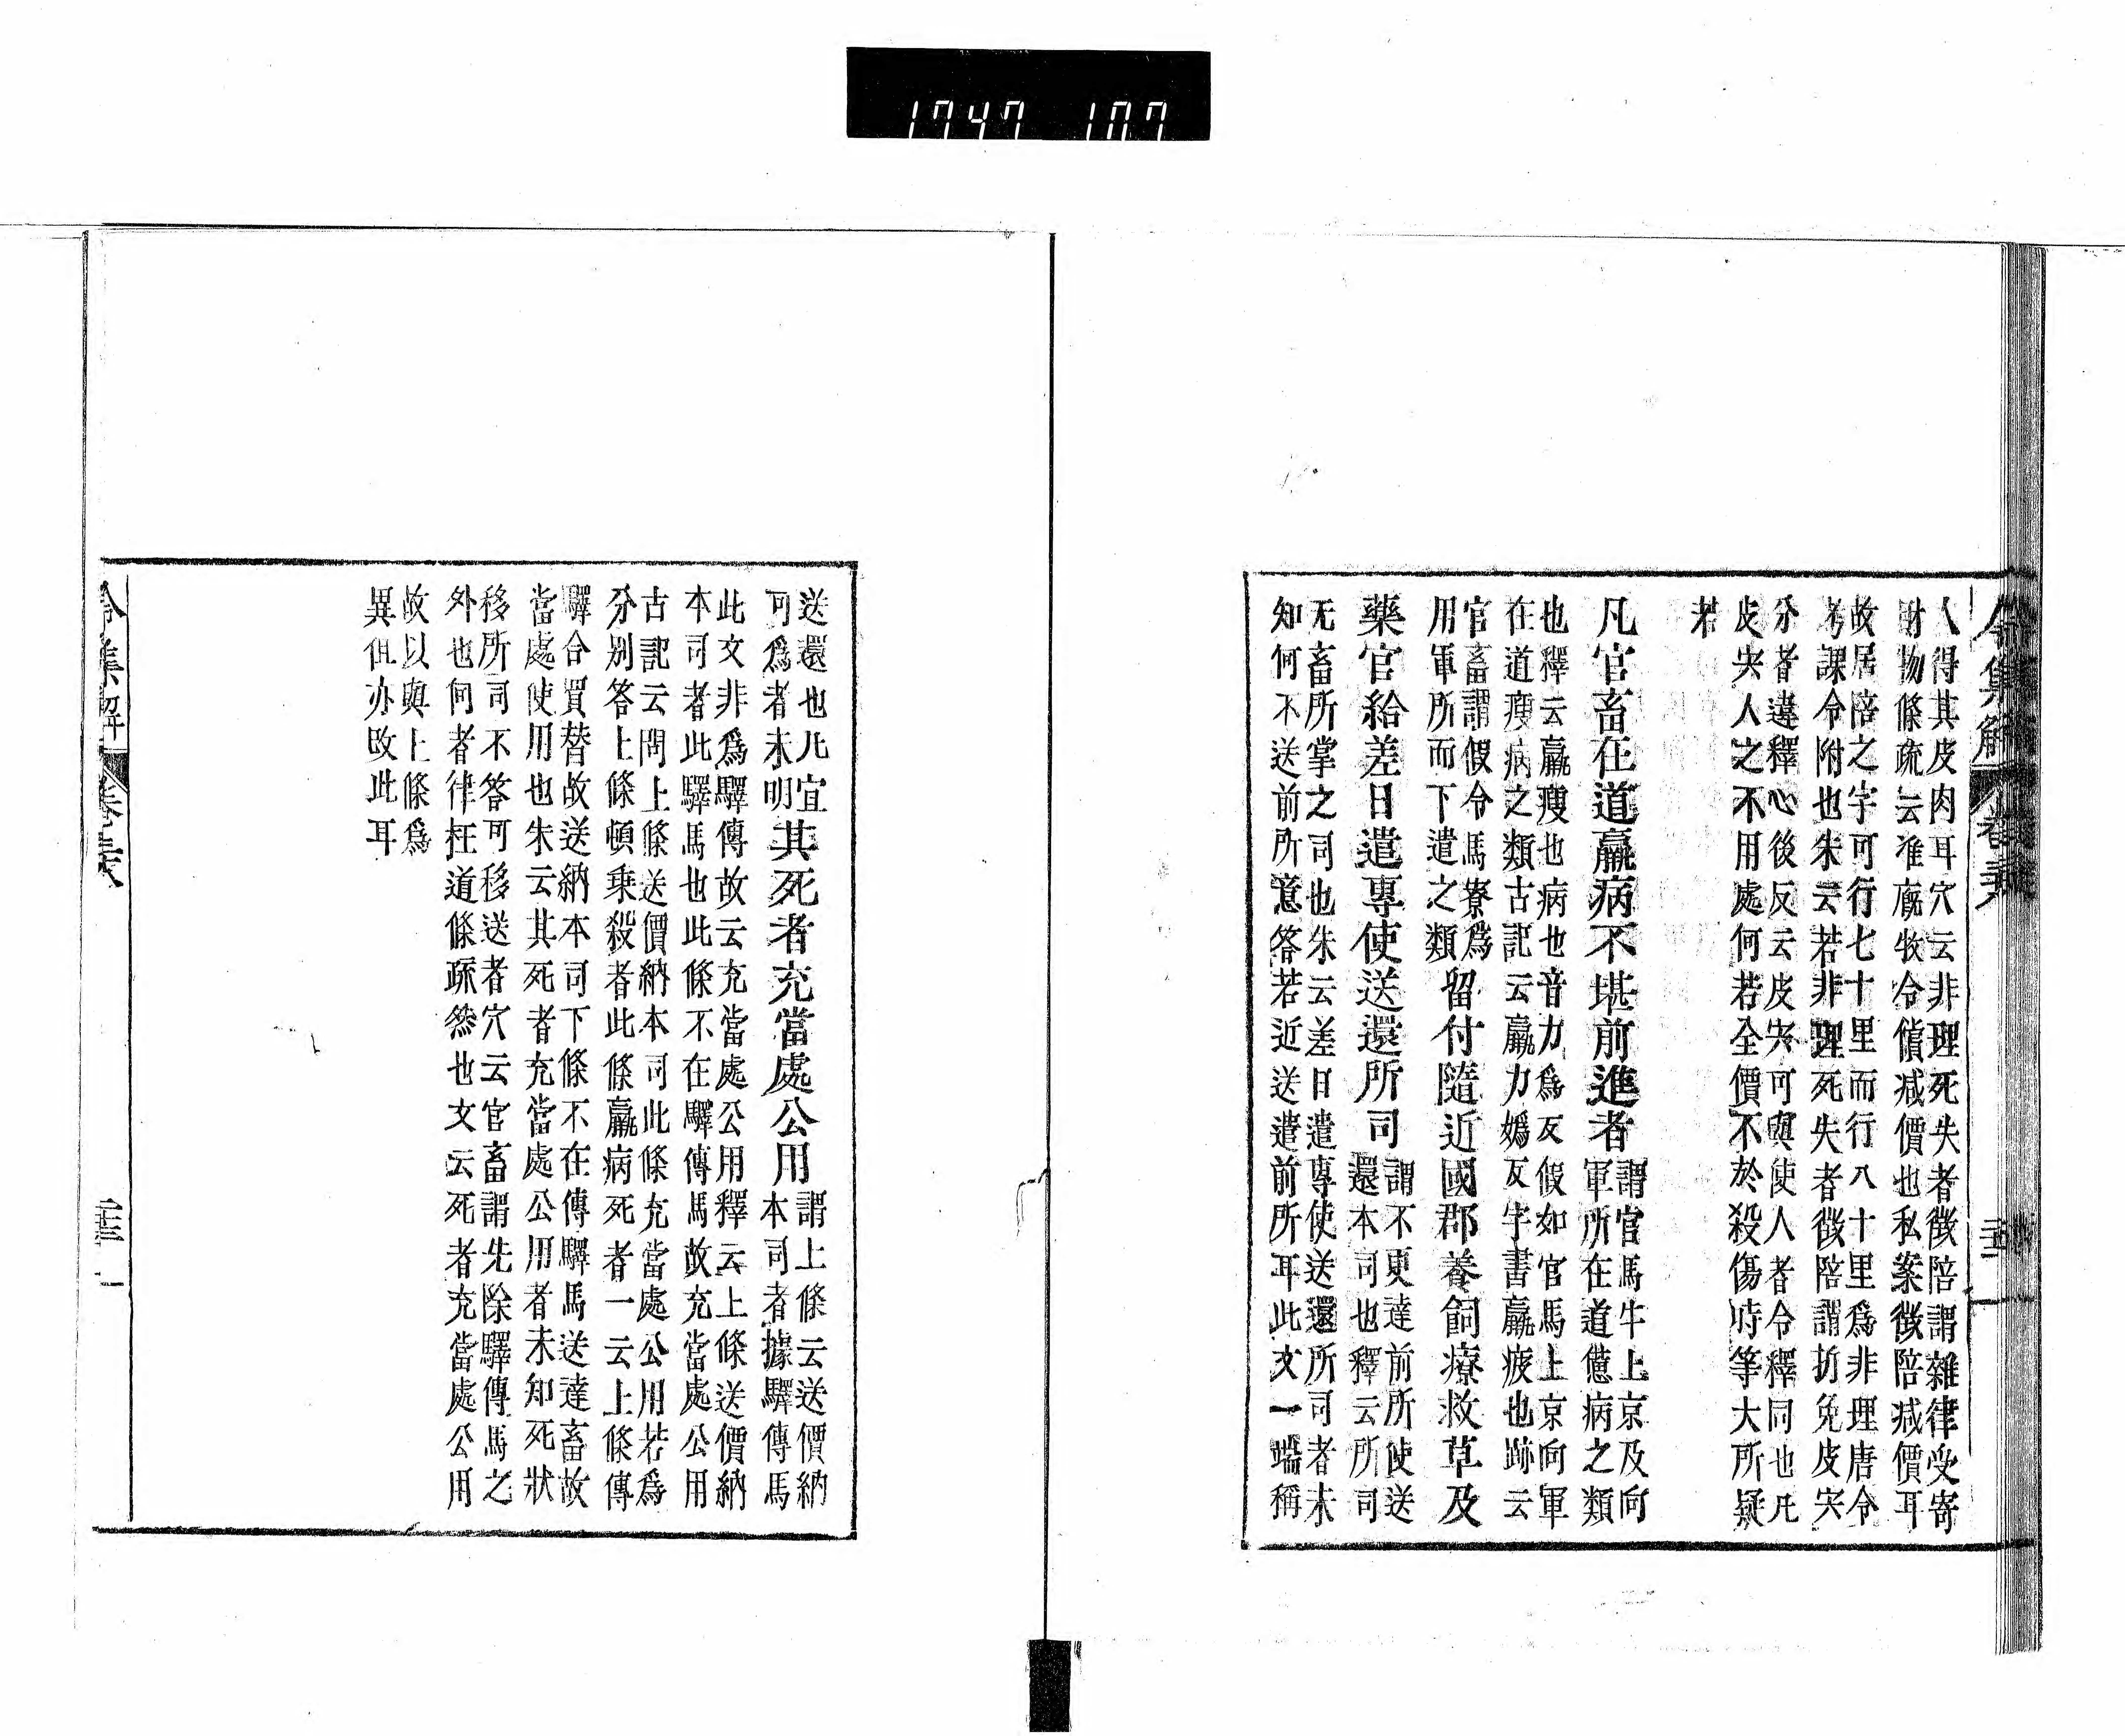 1747 107
令集解 卷三十八
人得其皮肉耳穴云非理死失者徴陪謂雜律受寄
財物條疏云准廐牧令償减價也私案徴陪减價耳
故居陪之字可行七十里而行八十里爲非理唐令
考課令附也朱云若非理死失者徴陪謂折免皮宍
分者違釋心後反云皮宍可與使人者令釋同也凡
皮宍人之不用處何若全價不於殺傷時等大所疑
若
凡官畜在道羸病不堪前進者
謂官馬牛上京及向
軍所在道億病之類
也釋云羸瘦也病也音力爲反假如官馬上京向軍
在道瘦病之類古記云羸力嬀反字書羸疲也跡云
官畜謂假令馬寮爲
用軍所而下遣之類
留付隨近國郡養飼療救草及
藥官給差日遣專使送還所司
謂不更達前所使送
還本司也釋云所司
无畜所掌之司也朱云差日遣專使送還所司者未
知何不送前所意答若近送遣前所耳此文一端稱
送還也凡宜
可爲者未明
其死者充當處公用
謂上條云送價納
本司者據驛傳馬
此文非爲驛傳故云充當處公用釋云上條送價納
本司者此驛馬也此條不在驛傳馬故充當處公用
古記云問上條送價納本司此條充當處公用若爲
分別答上條頓乗殺者此條羸病死者一云上條傳
驛合買替故送納本司下條不在傳驛馬送達畜故
當處使用也朱云其死者充當處公用者未知死狀
移所司不答可移送者穴云官畜謂先除驛傳馬之
外也何者律枉道條疏然也文云死者充當處公用
故以與上條爲
異但亦改此耳
令集解 卷三十八